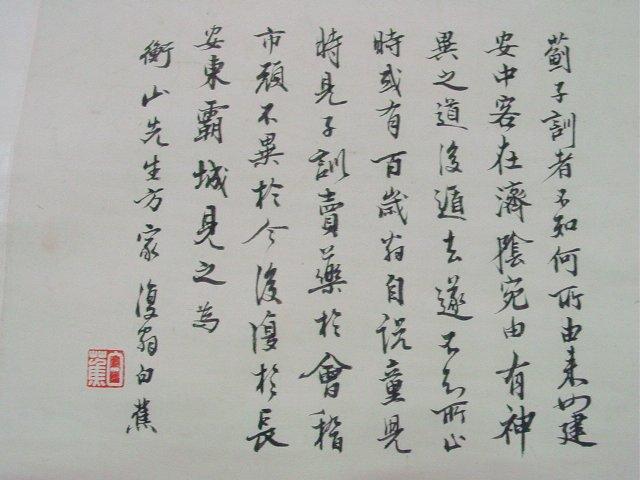 薊子訓者不知何所由来也建
安中客在濟陰宛由有神
異之道後遁去遂不知所止
時或有百歲翁自説童兒
時見子訓賣藥於會稽
市頭不異於今後復於長
安東霸城見之為
衡山先生方家 復翁白蕉
白蕉